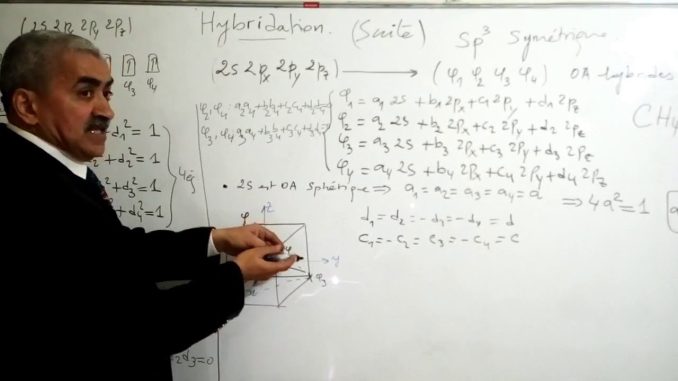 Hybridation. (Suite) Sp³ Symétrique.
(2s 2px 2py 2pz)
(2s 2px 2py 2pz) → (φ₁ φ₂ φ₃ φ₄) OA hybrides
φ₃ φ₄
φ₁ = a₁ 2s + b₁ 2px + c₁ 2py + d₁ 2pz
φ₂ = a₂ 2s + b₂ 2px + c₂ 2py + d₂ 2pz
φ₃ = a₃ 2s + b₃ 2px + c₃ 2py + d₃ 2pz
φ₄ = a₄ 2s + b₄ 2px + c₄ 2py + d₄ 2pz
CH₄
d₁² = 1
+ d₂² = 1
+ d₃² = 1
+ d₄² = 1
• 2s est OA sphérique ⇒ a₁ = a₂ = a₃ = a₄ = a ⇒ 4a² = 1
d₁ = d₂ = -d₃ = -d₄ = d
c₁ = -c₂ = c₃ = -c₄ = c
z
y
φ₃
d₃ = 0